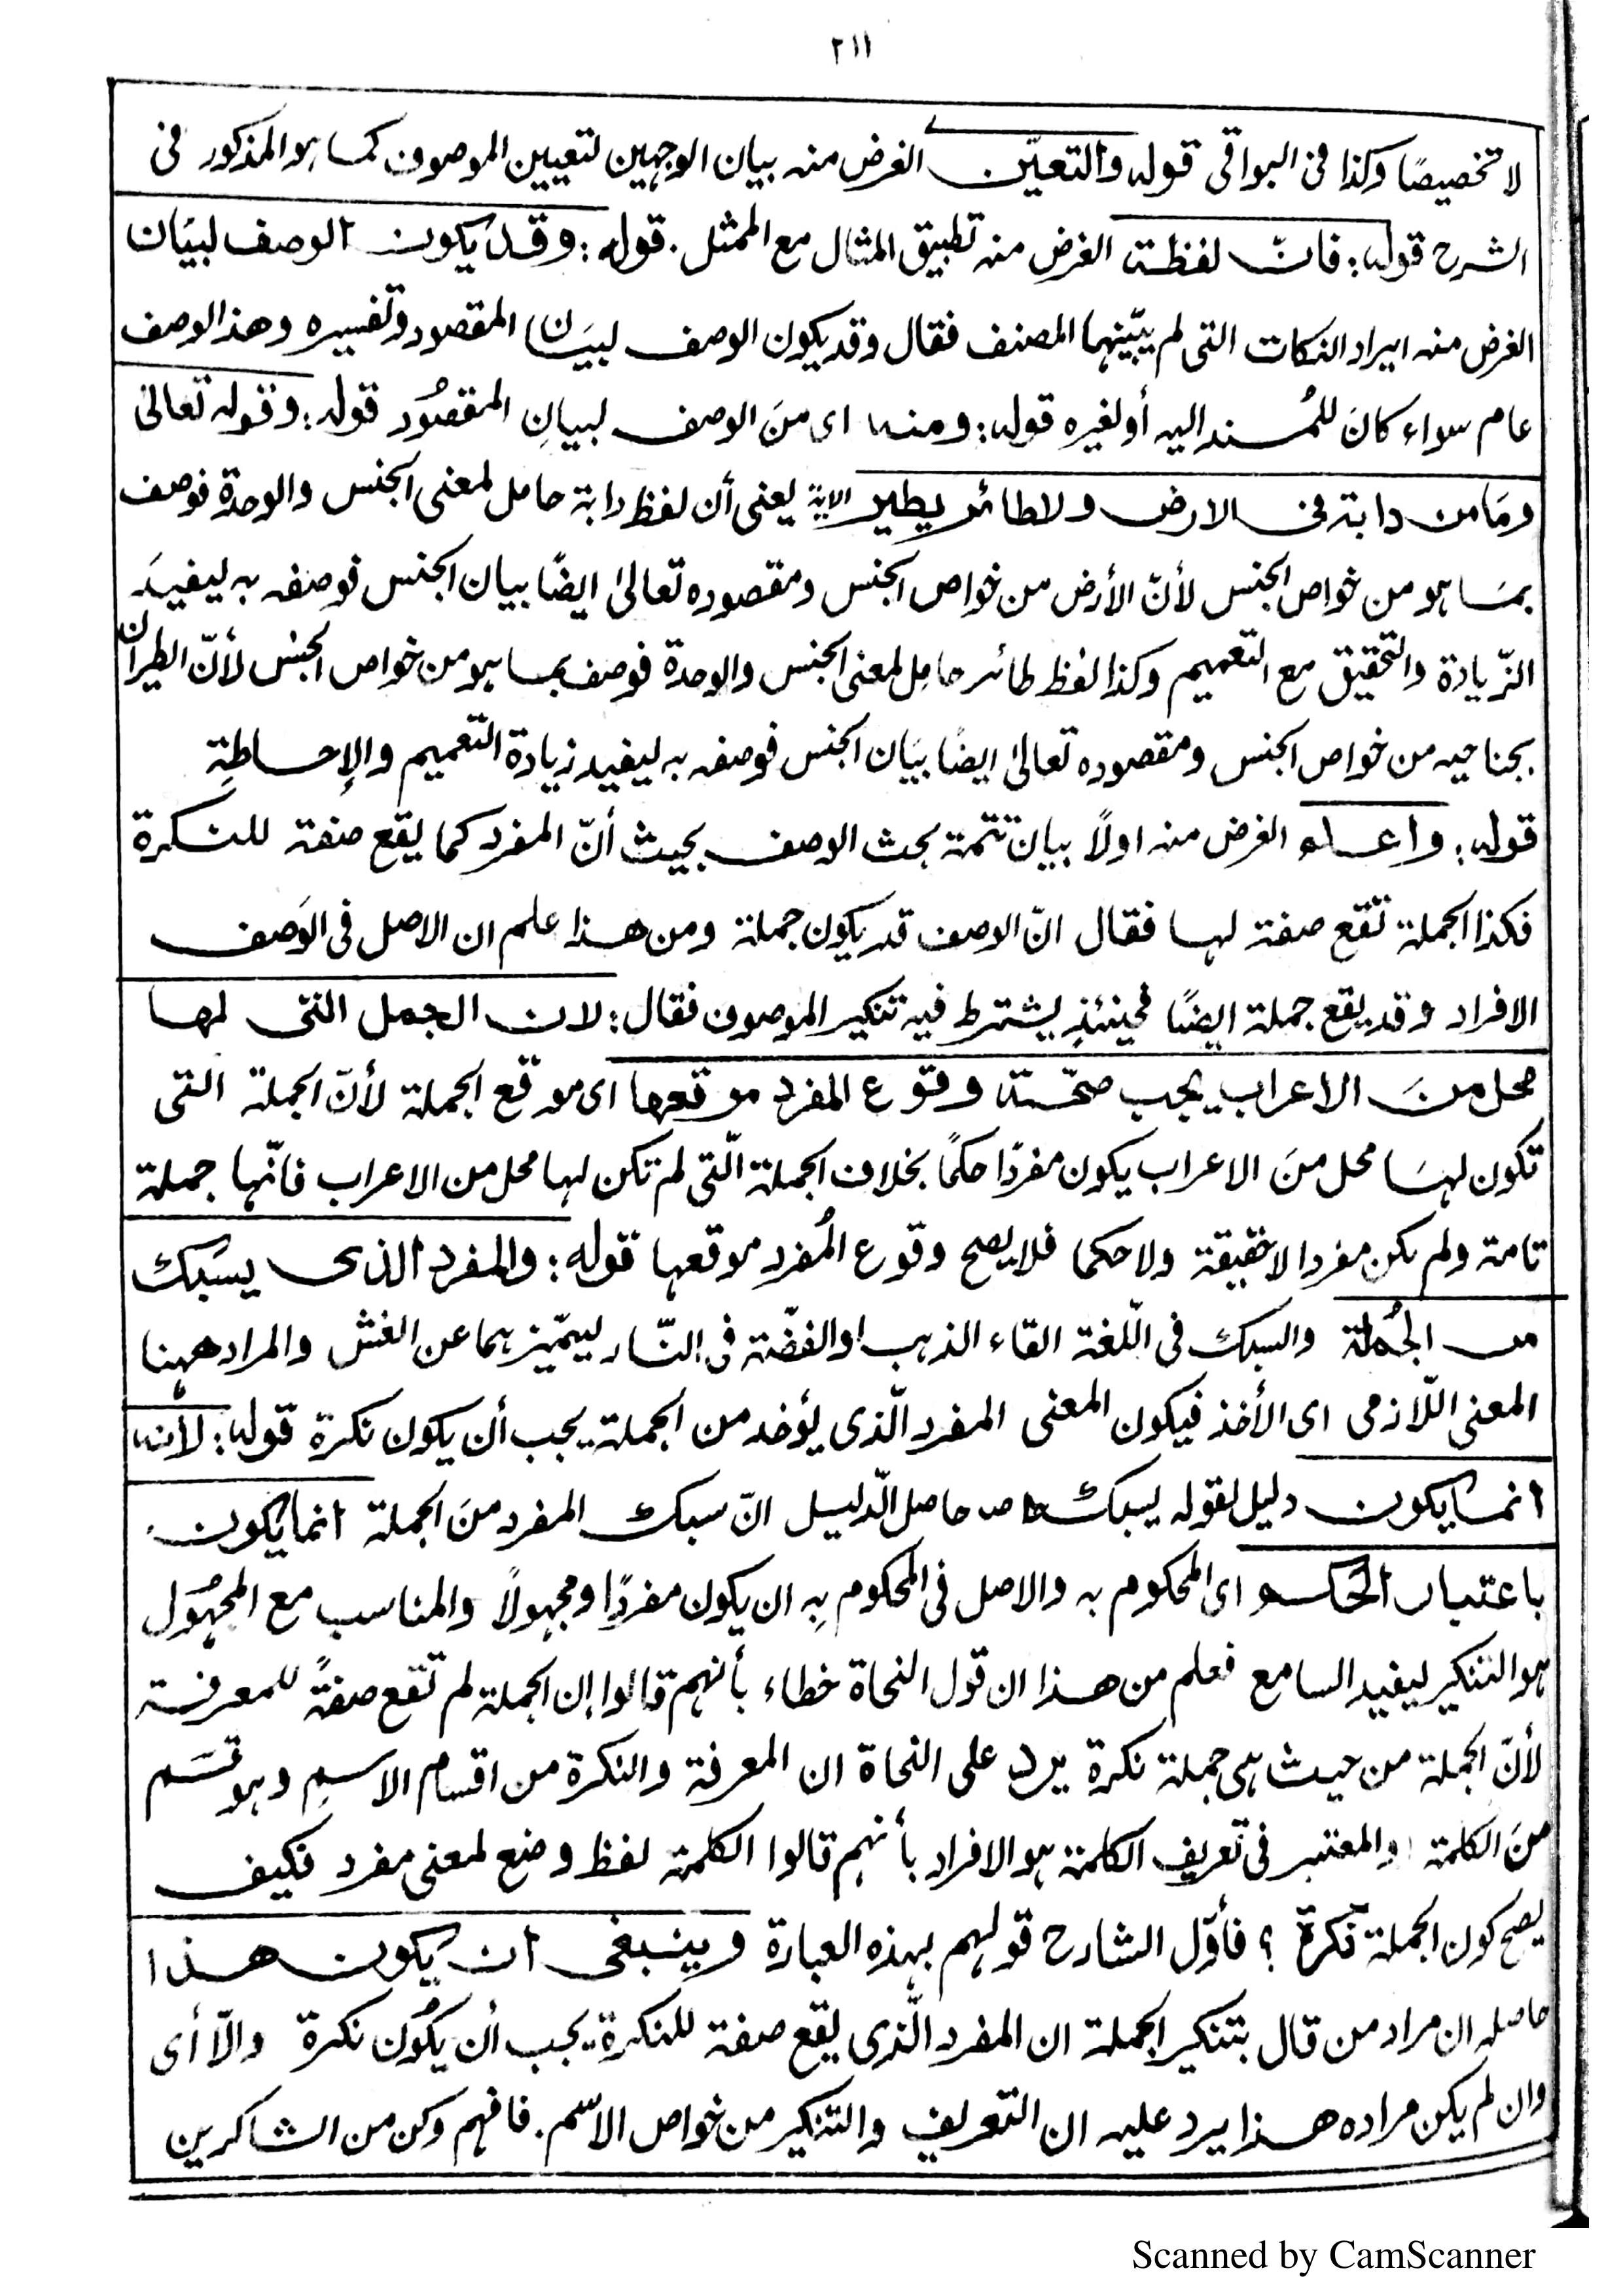 ٢١١
لا تخصيصًا وكذا فى البواقى قوله والتعيّن الغرض منه بيان الوجهين لتعيين الموصوف كما هو المذكور فى
الشرح قوله: فانّ لفظة الغرض منه تطبيق المثال مع الممثل. قوله: وقد يكون الوصف لبيَان
الغرض منه ايراد النكات التى لم يبّينها المصنف فقال وقد يكون الوصف لبيَان المقصود وتفسيره وهذا الوصف
عام سواء كانَ للمُسند اليه أو لغيره قوله: ومنه اى منَ الوصف لبيانِ المقصُود قوله: وقوله تعالىٰ
ومَا من دابة فى الارض ولا طائر يطير الاية يعنى أن لفظ دابة حامل لمعنى الجنس والوحدة فوصف
بمَا هو من خواص الجنس لأنّ الأرض من خواص الجنس ومقصوده تعالىٰ ايضًا بيان الجنس فوصفه به ليفيدَ
الزّيادة والتحقيق مع التعميم وكذا لفظ طائر حامِل لمعنى الجنس والوحدة فوصف بما هو من خواص الجنس لأنّ الطيران
بجناحيه من خواص الجنس ومقصوده تعالىٰ ايضًا بيَان الجنس فوصفه به ليفيد زيادة التعميم والإحاطةِ
قوله: واعلم الغرض منه اولاً بيان تتمة بحث الوصف بحيث أنّ المفرد كما يقع صفة للنكرة
فكذا الجملة تقع صفة لها فقال انّ الوصف قد يكون جملة ومن هذا علم ان الاصل فى الوَصف
الافراد وقد يقع جملة ايضًا فحينئذٍ يشترط فيه تنكير الموصوف فقال: لان الجمل التى لها
محل منَ الاعراب يجب صحّة وقوع المفرد موقعها اى موقع الجملة لأنّ الجملة التى
تكون لهَا محل منَ الاعراب يكون مفردًا حكمًا بخلاف الجملة الّتى لم تكن لها محل من الاعراب فانّها جملة
تامة ولم يكن مفردا لا حقيقة ولا حكما فلا يصح وقوع المُفرد موقعها قوله: والمفرد الذى يسَبك
من الجُملة والسبك فى اللّغة القاء الذهب او الفضّة فى النّار ليتميّز بهما عن الغش والمراد ههنا
المعنى اللّازمى اى الأخذ فيكون المعنى المفرد الّذى يؤخذ من الجملة يجب أن يكون نكرة قوله: لأنه
انمَا يكون دليل لقوله يسبك حاصل الدّليل انّ سبك المفرد منَ الجملة انما يكون
باعتبار الحُكم اى المحكوم به والاصل فى المحكوم بِه ان يكون مفردًا ومجهولاً والمناسب مع المجهُول
هو التنكير ليفيد السامع فعلم من هذا ان قول النحاة خطاء بأنهم قالوا إن الجملة لم تقع صفةً للمعرفة
لأنّ الجملة من حيث هى جملة نكرة يرد على النحاة ان المعرفة والنكرة من اقسام الاسمِ وهو قسَم
منَ الكلمة والمعتبر فى تعريف الكلمة هو الافراد بأنهم قالوا الكلمة لفظ وضع لمعنى مفرد فكيف
يصح كون الجملة نكرة ؟ فأوّل الشارح قولهم بهذه العبارة وينبغى ان يكون هذا
حاصله ان مراد من قال بتنكير الجملة ان المفرد الّذى يقع صفة للنكرة يجب أن يكُون نكرة والّا أى
وان لم يكن مراده هذا يرد عليه ان التعريف والتنكير من خواص الاسم. فافهم وكن من الشاكرين
Scanned by CamScanner